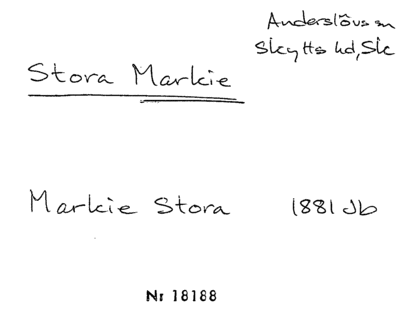 Anderslövs sn
Skytts hd, Sk
Stora Markie
Markie Stora 1881 Jb
Nr 18188